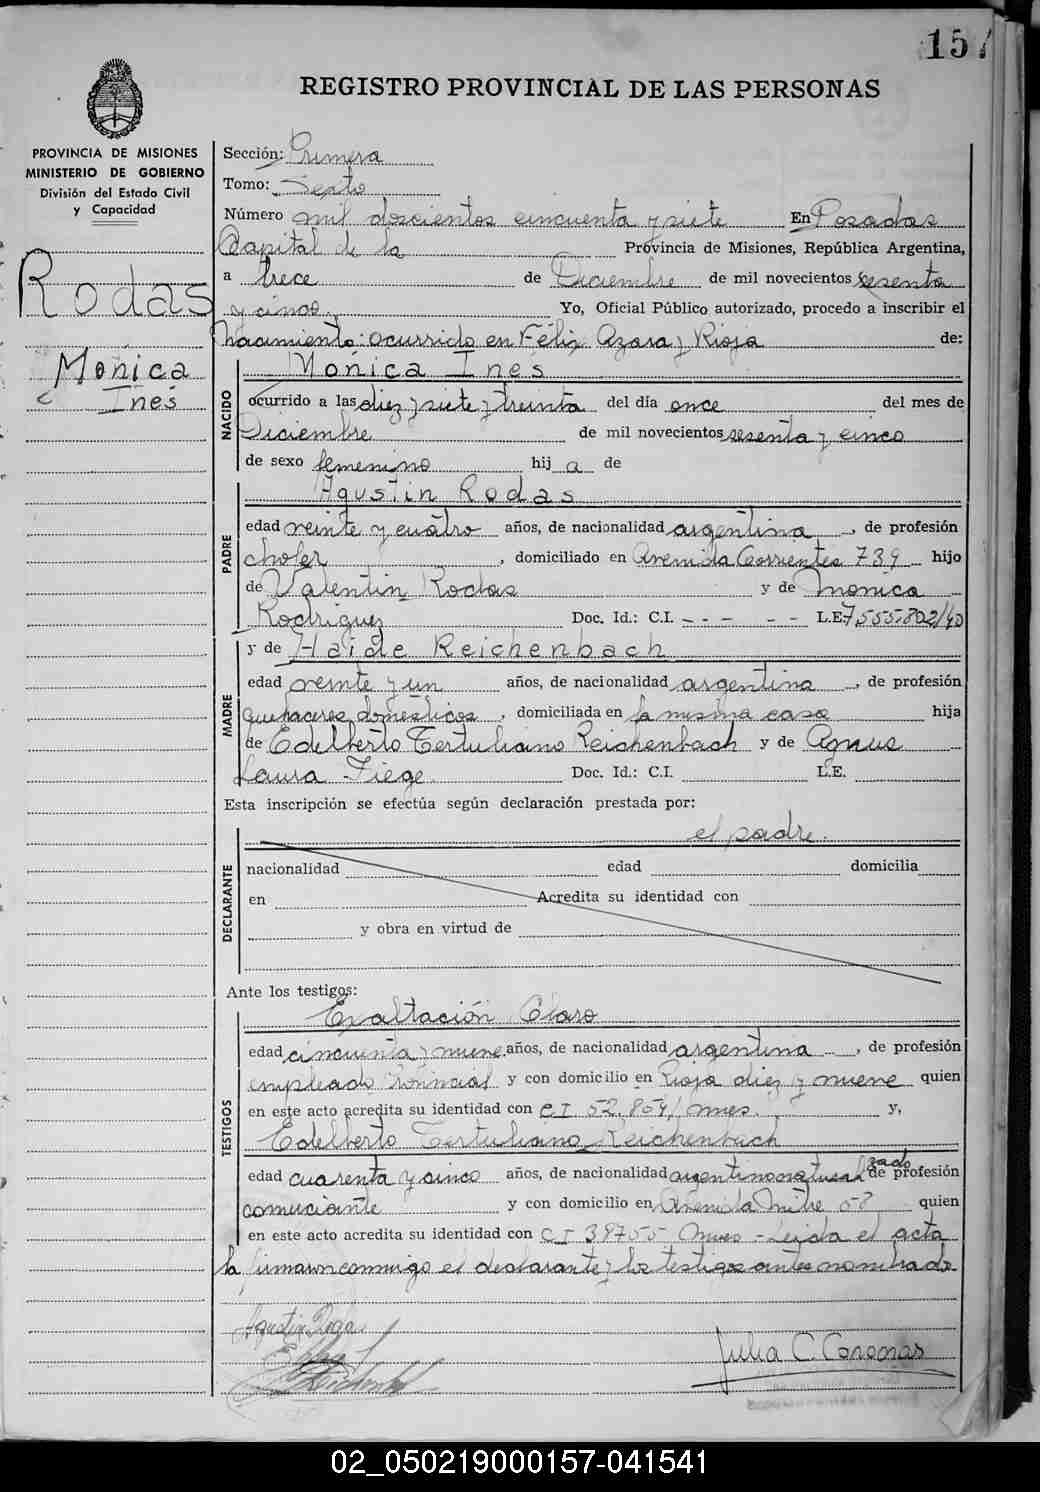 157
REGISTRO PROVINCIAL DE LAS PERSONAS
PROVINCIA DE MISIONES
MINISTERIO DE GOBIERNO
División del Estado Civil
y Capacidad
Rodas
Monica
Ines
Sección: Primera
Tomo: Sexto
Número mil doscientos cincuenta y siete En Posadas
Capital de la Provincia de Misiones, República Argentina,
a trece de Diciembre de mil novecientos sesenta
y cinco, Yo, Oficial Público autorizado, procedo a inscribir el
Nacimiento: ocurrido en Félix Azara y Rioja de:
NACIDO
Mónica Ines
ocurrido a las diez y siete y treinta del día once del mes de
Diciembre de mil novecientos sesenta y cinco
de sexo femenino hij a de
PADRE
Agustin Rodas
edad veinte y cuatro años, de nacionalidad argentina, de profesión
chofer, domiciliado en Avenida Corrientes 739 hijo
de Valentin Rodas y de Monica
Rodriguez Doc. Id.: C.I. - - - - - L.E. 7.555.802/40
y de Haide Reichenbach
MADRE
edad veinte y un años, de nacionalidad argentina, de profesión
quehaceres domésticos, domiciliada en la misma casa hija
de Edelberto Tertuliano Reichenbach y de Agnus
Laura Fiege Doc. Id.: C.I. L.E.
Esta inscripción se efectúa según declaración prestada por:
el padre.
DECLARANTE
nacionalidad edad domicilia
en Acredita su identidad con
y obra en virtud de
Ante los testigos:
TESTIGOS
Exaltación Claro
edad cincuenta y nueve años, de nacionalidad argentina, de profesión
empleado Provincial y con domicilio en Rioja diez y nueve quien
en este acto acredita su identidad con C I 52.854/ mnes. y,
Edelberto Tertuliano Reichenbach
edad cuarenta y cinco años, de nacionalidad argentino naturalizado de profesión
comerciante y con domicilio en Avenida Mitre 58 quien
en este acto acredita su identidad con C I 39755 Mnes - Leida el acta
la firman conmigo el declarante y los testigos antes nombrado
Agustin Rodas
Julia C. Coronas
02_050219000157-041541